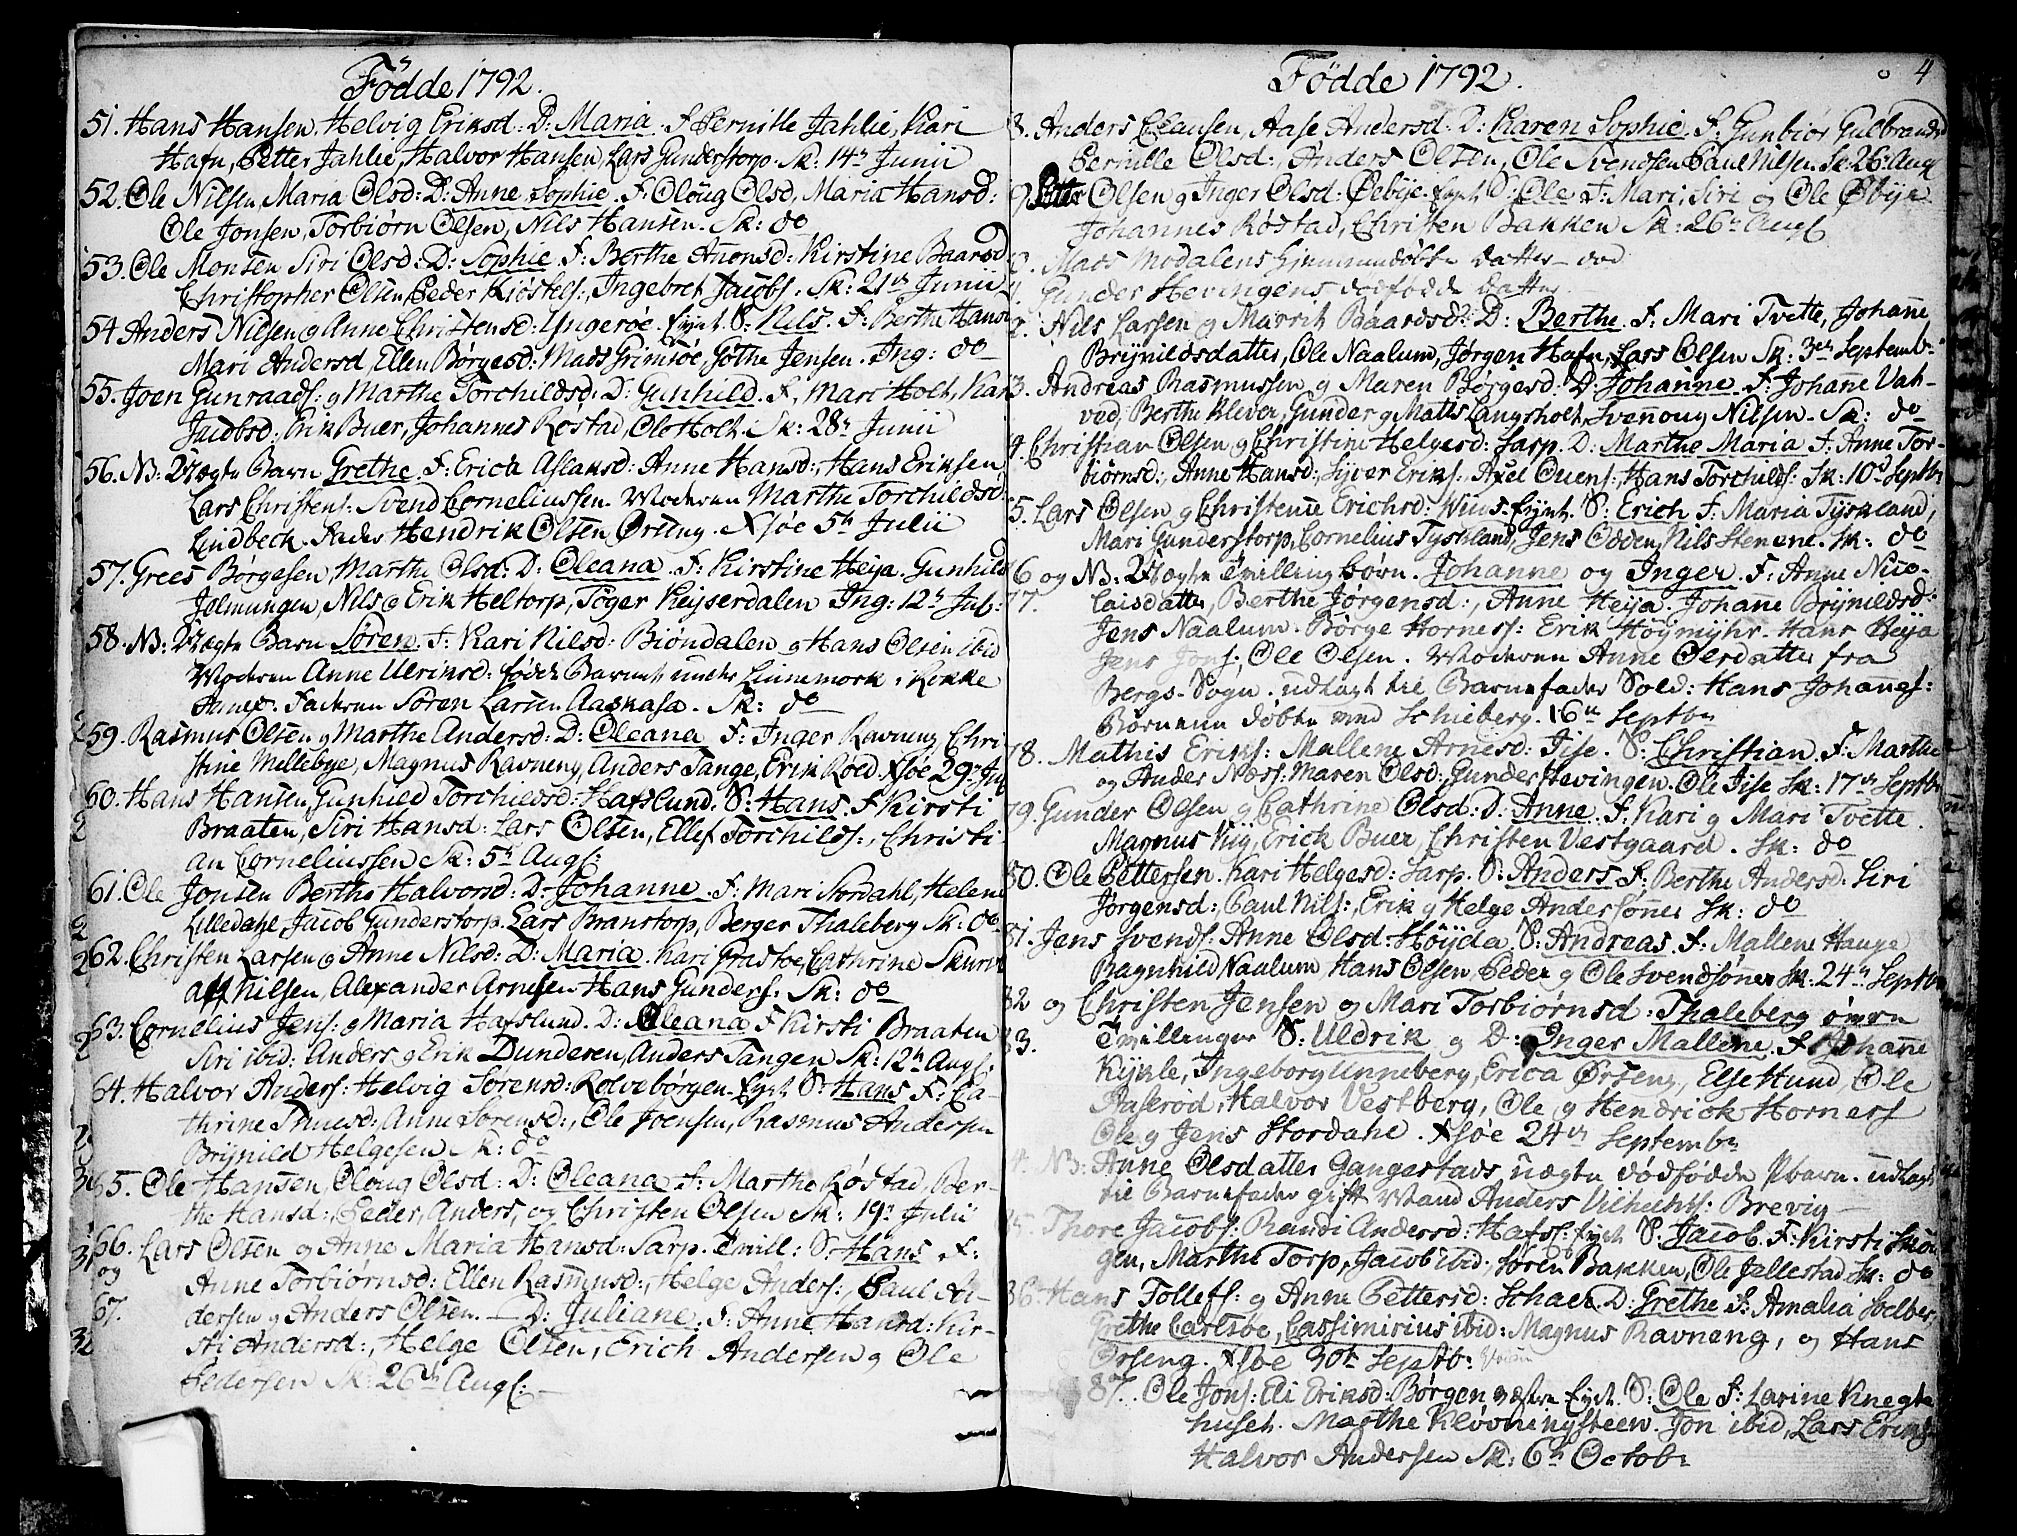 Födde 1792.
51. Hans Hansen, Helvig Eriksd: D: Maria. F Pernille Jahlie, Kari
Hafn, Petter Jahlie, Halvor Hansen, Lars Gunderstorp. Sk: 14de Junii
52. Ole Nilsen, Maria Olsd: D: Anne Sophie. F Oloug Olsd, Maria Hansd:
Ole Jonsen, Torbiørn Olsen, Nils Hansen. Sk: do
53. Ole Monsen Siri Olsd: D: Sophie. F: Berthe Anonsd: Kirstine Baarsd
Christopher Olsen, Peder Kiostels:, Ingebret Jacobs. Sk: 21de Junii
54 Anders Nilsen og Anne Christensd: Yngesøe S: Nils. F: Berthe Hansd
Mari Andersd, Ellen Börgesd: Mads Grimsøe, Göthe Jensen. Ing: do
55. Joen Gunraads: og Marthe Torchildsd: D: Gunhild. F, Mari Holt, Kari
Jacobsd: Erik Buer, Johannes Röstad, Ole Holt. Sk: 28de Junii
56. NB: Uægte Barn Grethe. F: Erica Aslaksd: Anne Hansd:, Hans Eriksen
Lars Christens: Svend Corneliussen. Moderen Marthe Torchildsd:
Lindbeck. Fader Hendrik Olsen Ørseng. Xsøe 5te Julii
57. Grees Børgesen, Marthe Olsd: D: Oleana. F: Kirstine Heija. Gunhild
Jelmungen, Nils og Erik Heltorp, Töger Keyserdalen Ing: 12te Jul:
58. NB: Uægte Barn Søren. F: Kari Nilsd: Biöndalen og Hans Olsen ibid
Moderen Anne Ulriksd: födte Barnet under Linnemork i Rokke
Faderen Sören Larsen Aaskasa. Sk: do
59. Rasmus Olsen og Marthe Andersd: D: Oleana F: Inger Ravneng Chri
stine Mellebye, Magnus Ravneng, Anders Tange, Erik Roed. Xsøe 29de Jul
60. Hans Hansen Gunhild Torchildsd: Hafslund. S: Hans. F Kirsti
Braaten, Siri Hansd: Lars Olsen, Ellef Torchilds:, Christi
an Corneliussen Sk: 5te Augs:
61. Ole Jonsen Berthe Halvorsd: D: Johanne. F: Mari Stordahl, Helene
Lilledahl Jacob Gunderstorp. Lars Branstorp, Berger Thaleberg Sk: do
62. Christen Larsen og Anne Nilsd: D: Maria. Kari Cathrine
Nilsen, Alexander Arnesen Hans Gunders: Sk: do
63. Cornelius Jens: og Maria Hafslund. D: Oleana F Kirsti Braaten
Siri ibid: Anders og Erik Dunderen, Anders Tangen Sk: 12te Augs:
64. Halvor Anders: Helvig Sorensd: Rolvsbörgen S: Hans F: Ca-
thrine Truesd: Anne Sorensd:, Ole Joensen, Rasmus Andersen
Brijnild Helgesen Sk: do
65. Ole Hansen, Oloug Olsd: D: Oleana F: Marthe Röstad, Ber-
the Hansd:, Peder, Anders, og Christen Olsen Sk: 19de Julii
66. Lars Olsen og Anne Maria Hansd: Sarp. Tvill: S: Hans F:
og Anne Torbiörnsd: Ellen Rasmusd:, Helge Anders:, Paul An-
67. dersen og Anders Olsen. - D: Juliane. F: Anne Hansd: Kir-
sti Andersd:, Helge Olsen, Erich Andersen og Ole
Pedersen Sk: 26de Augs:
Födde 1792.
4
8. Anders Clausen, Aase Andersd: D: Karen Sophie. F: Gunbiör Gulbrandsd
Pernille Olsd:, Anders Olsen, Ole Svendsen Paul Nilsen Sk: 26. Aug
9. Petter Olsen og Inger Olsd: Øebije S: Ole F: Mari, Siri og Ole Øbije
Johannes Röstad, Christen Bakken Sk: 26de Augs
Mads Modalens hjemmedöbte datter
Gunder Hevingens dödfödde datter
2. Nils Larsen og Marrit Baardsd: D: Berthe. F: Mari Tvette, Johanne
Brijnildsdatter, Ole Naalum, Jørgen Hafn, Lars Olsen Sk: 3de Septembr
3. Andreas Rasmussen og Maren Börgesd: D: Johanne. F: Johanne Vah-
ved, Berthe Klever, Gunder og Matts Langsholt, Svenoug Nilsen. Sk: do
4. Christian Olsen og Christine Helgesd: Sarp. D: Marthe Maria F: Anne Tor-
biörnsd:, Anne Hansd: Syver Eriks:, Axel Ouens:, Hans Torchilds: Sk: 10de Septbr
5. Lars Olsen og Christene Erichsd: S: Erich F: Maria Tyskland,
Mari Gunderstorp, Cornelius Tyskland, Jens Odden, Nils Stenene. Sk: do
6 og NB: Uægte Tvillingbörn. Johanne og Inger. F: Anne Nico-
77. laisdatter, Berthe Jörgensd:, Anne Heija. Johanne Brijnildsd:
Jens Naalum. Börge Horness: Erik Höymyhr. Hans Heija
Jens Jons: Ole Olsen. Moderen Anne Olsdatter fra
Bergs-Sogn. udlagt til Barnefader Sold: Hans Johanes:
Börnene döbte ved Schieberg. 16de Septbr
78. Mathis Eriks: Mallene Arnesd: Iise. S: Christian. F: Marthe
og Ander Næss: Maren Olsd: Gunder Hevingen. Ole Iise Sk: 17de Septbr
79. Gunder Olsen og Cathrine Olsd: D: Anne F: Kari og Mari Tvette
Magnus Kiig, Erick Buer, Christen Vestgaard. Sk: do
80. Ole Pettersen. Kari Helgesd: Sarp. S: Anders F: Berthe Andersd: Siri
Jörgensd:, Paul Nils:, Erik og Helge Andersönner Sk: do
81. Jens Svends: Anne Olsd: Höijda S: Andreas F: Mallene Hauge
Bagnhild Naalum Hans Olsen Peder og Ole Svendsöner Sk: 24de Septbr
82 og Christen Jensen og Mari Torbiörnsd: Thaleberg
83. Tvillinger S: Uldrik og D: Inger Mallene. F Johanne
Kijkle, Ingeborg Unneberg, Erica Ørseng, Else Hund, Ole
Aaserod, Halvor Vestberg, Ole og Hendrick Horners
Ole og Jens Stordahl. Xsøe 24de Septembr
4. NB: Anne Olsdatter Gangestads uægte dödfödde Pbarn. udlagt
til Barnefader gift Mand Anders Vilhelms: Brevig
85. Thore Jacobs: Randi Andersd: Hafs: S: Jacob. F: Kirsti Skou
gen, Marthe Torp, Jacob ibid. Sören Bakken, Ole Jellestad Sk: do
86 Hans Tollefs: og Anne Pettersd: Schaer D: Grethe F: Amalia Soelber,
Grethe Carlsøe, Cassimirius ibid: Magnus Ravneng, og Hans
Orseng. Xsøe 30te Septb:
87. Ole Jons: Eli Eriksd: Börgen S: Ole F: Larine Knegte
huset. Marthe Klövningsteen. Jon ibid, Lars Eriks
Halvor Andersen Sk: 6te Octob: